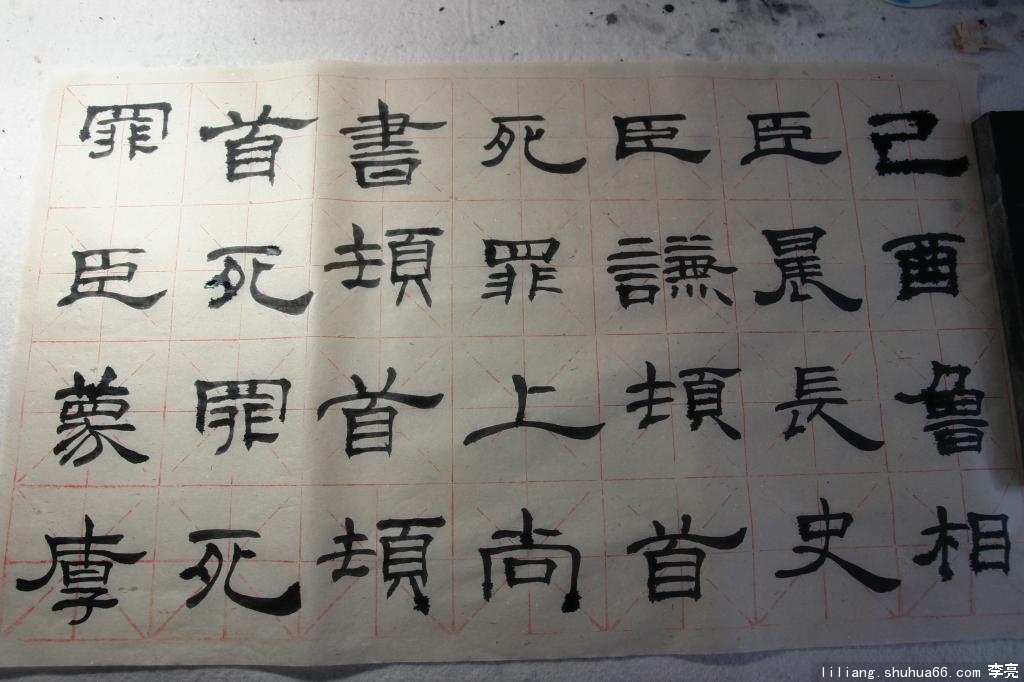 己酉魯相
臣晨長史
臣謙頓首
死罪上尚
書頓首頓
首死罪死
罪臣蒙厚
liliang.shuhua66.com 李亮